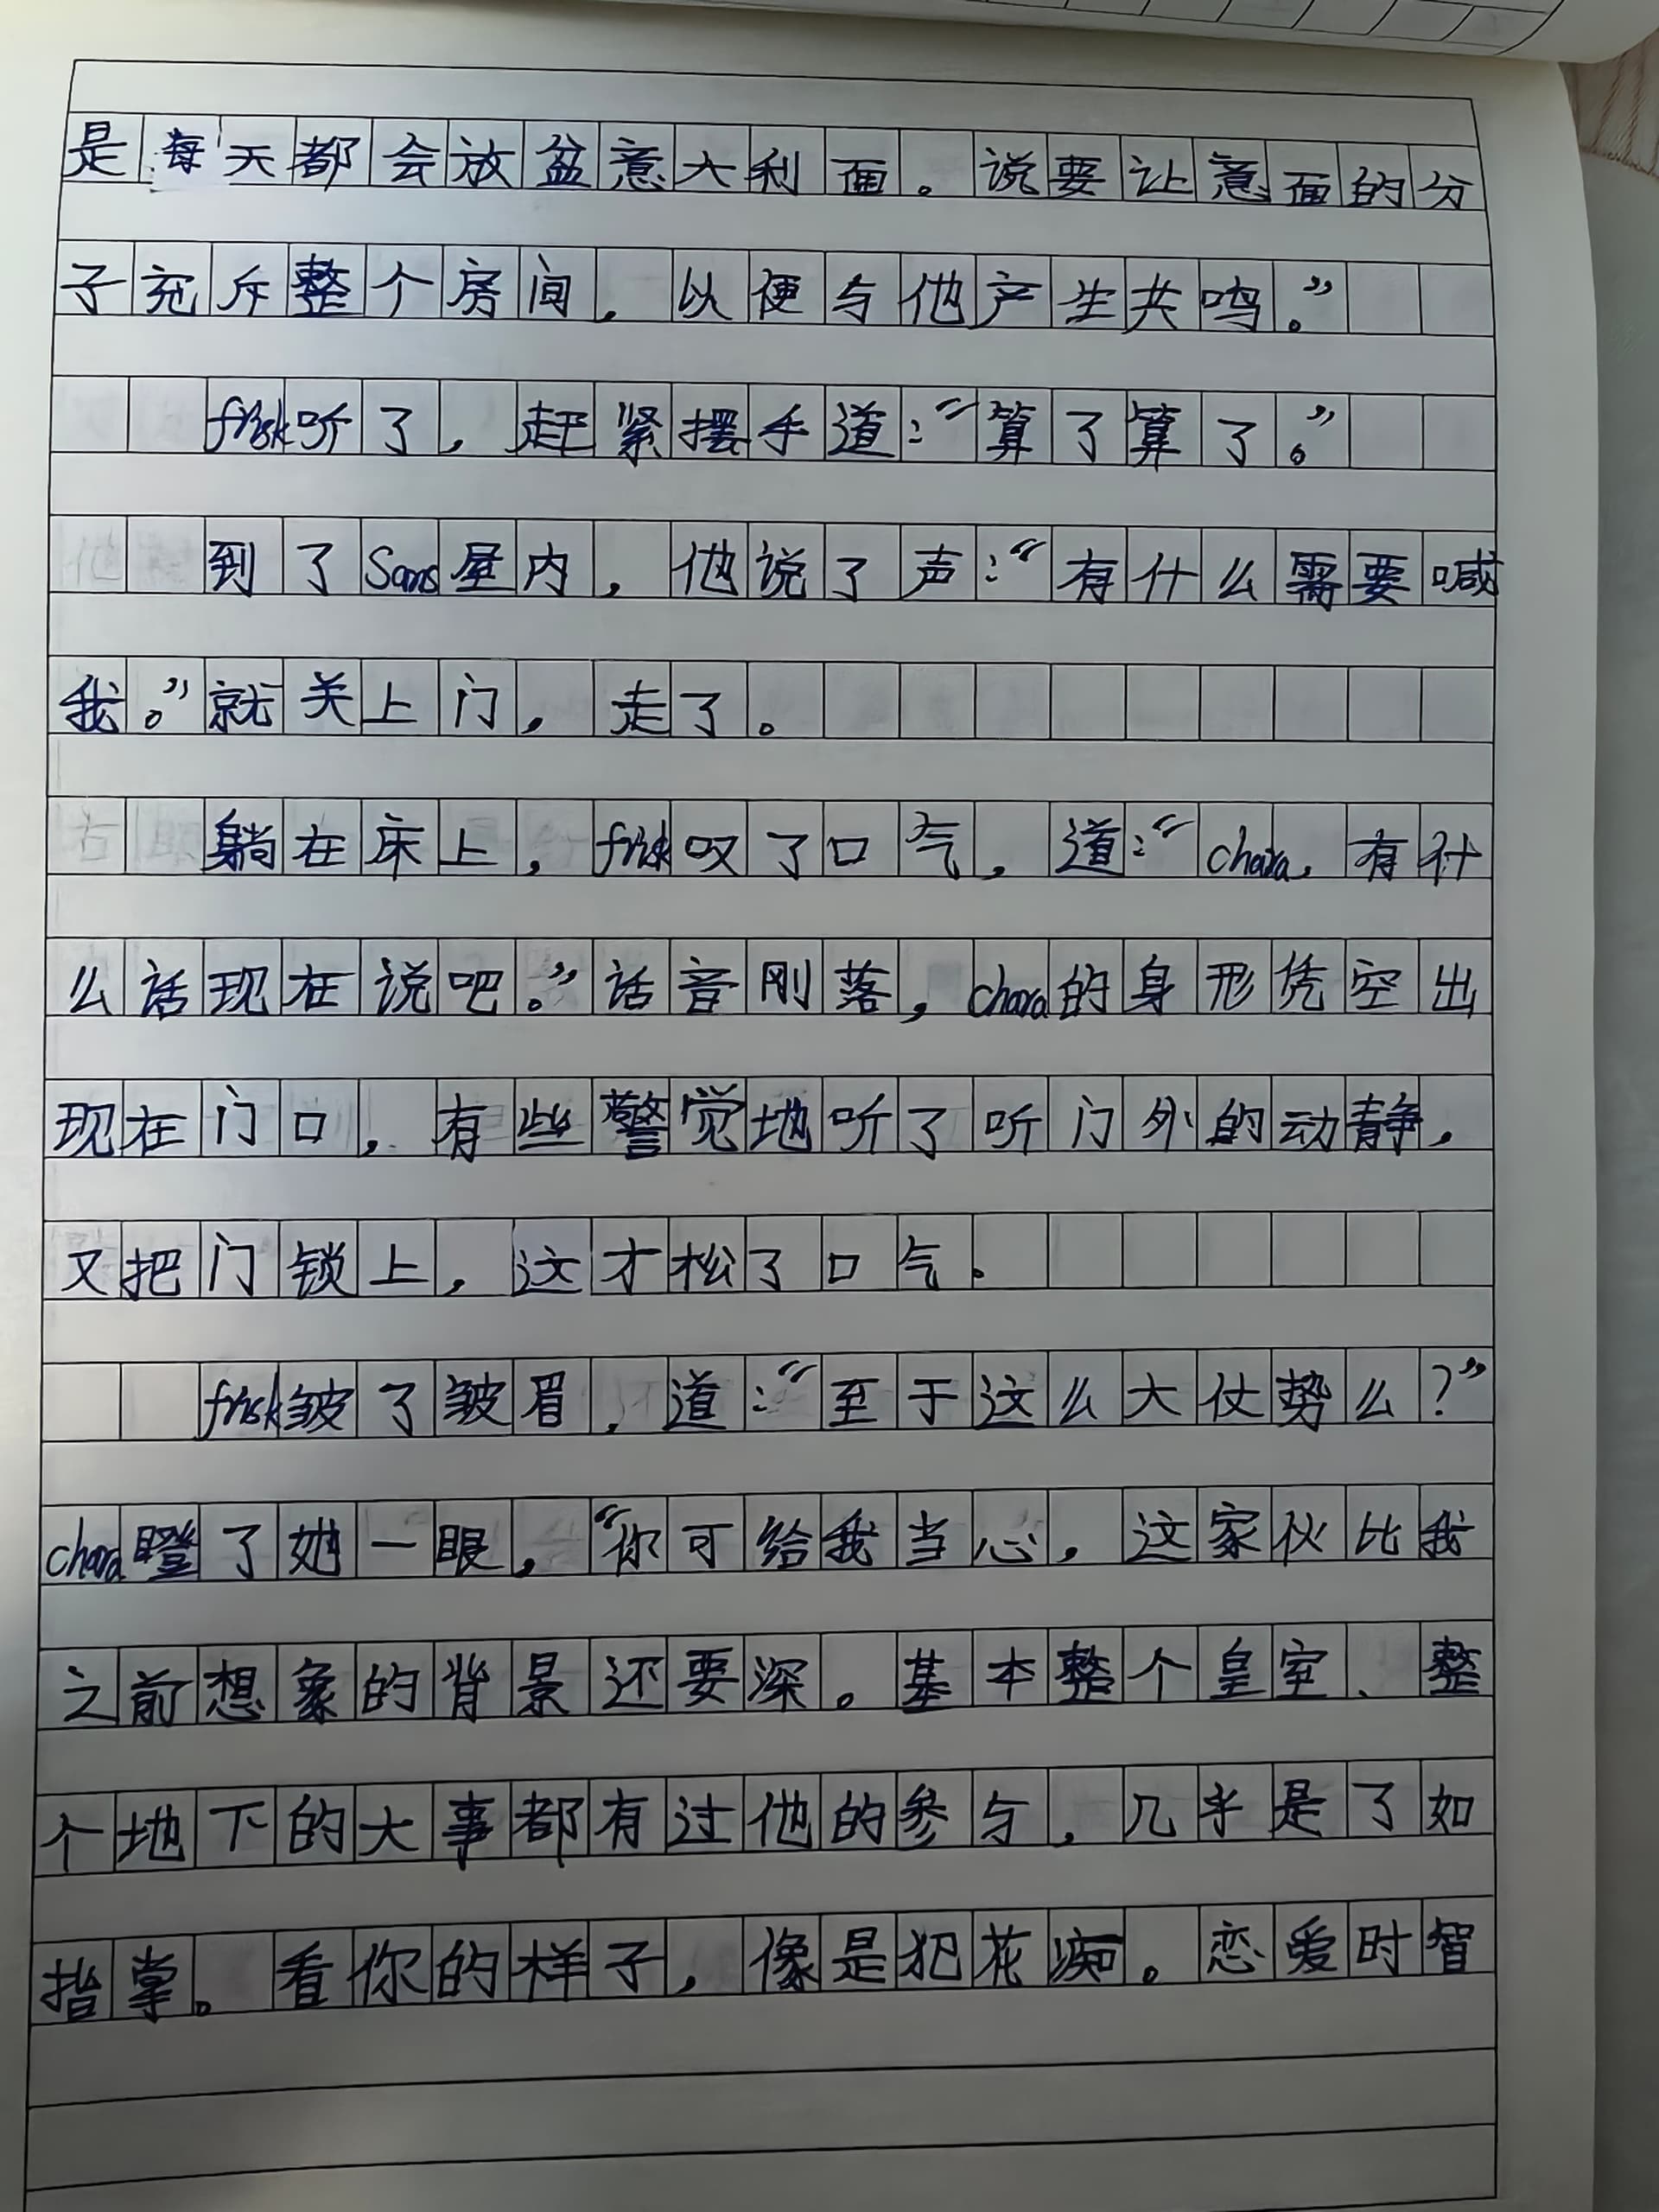 是每天都会放盆意大利面。说要让意面的分
子充斥整个房间，以便与他产生共鸣。”
frisk听了，赶紧摆手道：“算了算了。”
到了Sans屋内，他说了声：“有什么需要喊
我。”就关上门，走了。
躺在床上，frisk叹了口气，道：“chara，有什
么话现在说吧。”话音刚落，chara的身形凭空出
现在门口，有些警觉地听了听门外的动静，
又把门锁上，这才松了口气。
frisk皱了皱眉，道：“至于这么大仗势么？”
chara瞪了她一眼，“你可给我当心，这家伙比我
之前想象的背景还要深。基本整个皇室、整
个地下的大事都有过他的参与，几乎是了如
指掌。看你的样子，像是犯花痴。恋爱时智